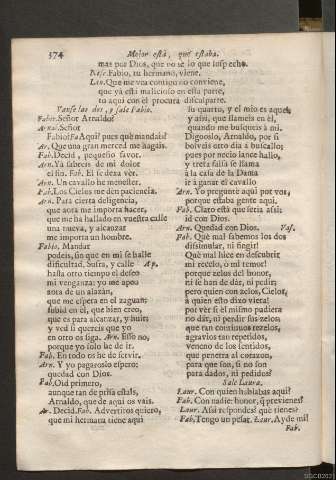 374 Mejor está, que estaba.
mas por Dios, que no se lo que sospecho.
Nise. Fabio, tu hermano, viene.
Lau. Que me vea contigo no conviene,
que yà està malicioso en esta parte,
tu aqui con èl procura disculparte.
Vanse las dos, y sale Fabio.
Fabio. Señor Arnaldo?
Arnal. Señor
Fabio? Fa. Aqui? pues què mandais?
Ar. Que una gran merced me hagais.
Fab. Decid, pequeño favor.
Arn. Yà sabeis de mi dolor
el fin. Fab. El se dexa vèr.
Arn. Un cavallo he menester.
Fab. Los Cielos me dèn paciencia.
Arn. Para cierta deligencia,
que aora me importa hacer,
que me ha hallado en vuestra calle
una nueva, y alcanzar
me importa un hombre.
Fabio. Mandar
podeis, sin que en mi se halle
dificultad. Sufra, y calle Ap.
hasta otro tiempo el deseo
mi venganza: yo me apeo
aora de un alazàn,
que me espera en el zaguan;
subid en èl, que bien creo,
que es para alcanzar, y huir;
y ved si quereis que yo
en otro os siga. Arn. Esso no,
porque yo solo he de ir.
Fab. En todo os he de servir.
Arn. Y yo pagaroslo espero;
quedad con Dios.
Fab. Oid primero,
aunque tan de prisa estais,
Arnaldo, que de aqui os vais.
Ar. Decid. Fab. Advertiros quiero,
que mi hermana tiene aqui
su quarto, y el mio es aquel;
y assi, que llameis en èl,
quando me busqueis à mi.
Digooslo, Arnaldo, por si
bolveis otro dia à buscallo;
pues por necio lance hallo,
y treta falsa se llama
à la casa de la Dama
ir à ganar el cavallo.
Arn. Yo preguntè aqui por vos,
porque estaba gente aqui.
Fab. Claro està que seria assi;
id con Dios.
Arn. Quedad con Dios. Vas.
Fab. Què mal sabemos los dos
dissimular, ni fingir!
Què mal hice en descubrir
mi rezelo, ò mi temor!
porque zelos del honor,
ni se han de dàr, ni pedir;
pero quien con zelos, Cielos,
à quien esto dixo viera!
por vèr si èl mismo pudiera
no dàr, ni pedir sus zelos
que tan continuos rezelos,
agravios tan repetidos,
veneno de los sentidos,
que penetra al corazon,
para què son, si no son
para dados, ni pedidos?
Sale Laura.
Laur. Con quien hablabas aqui?
Fab. Con nadie: honor, què previenes?
Laur. Assi respondes? què tienes?
Fab. Tengo un pesar. Laur. Ay de mi!
Fab.